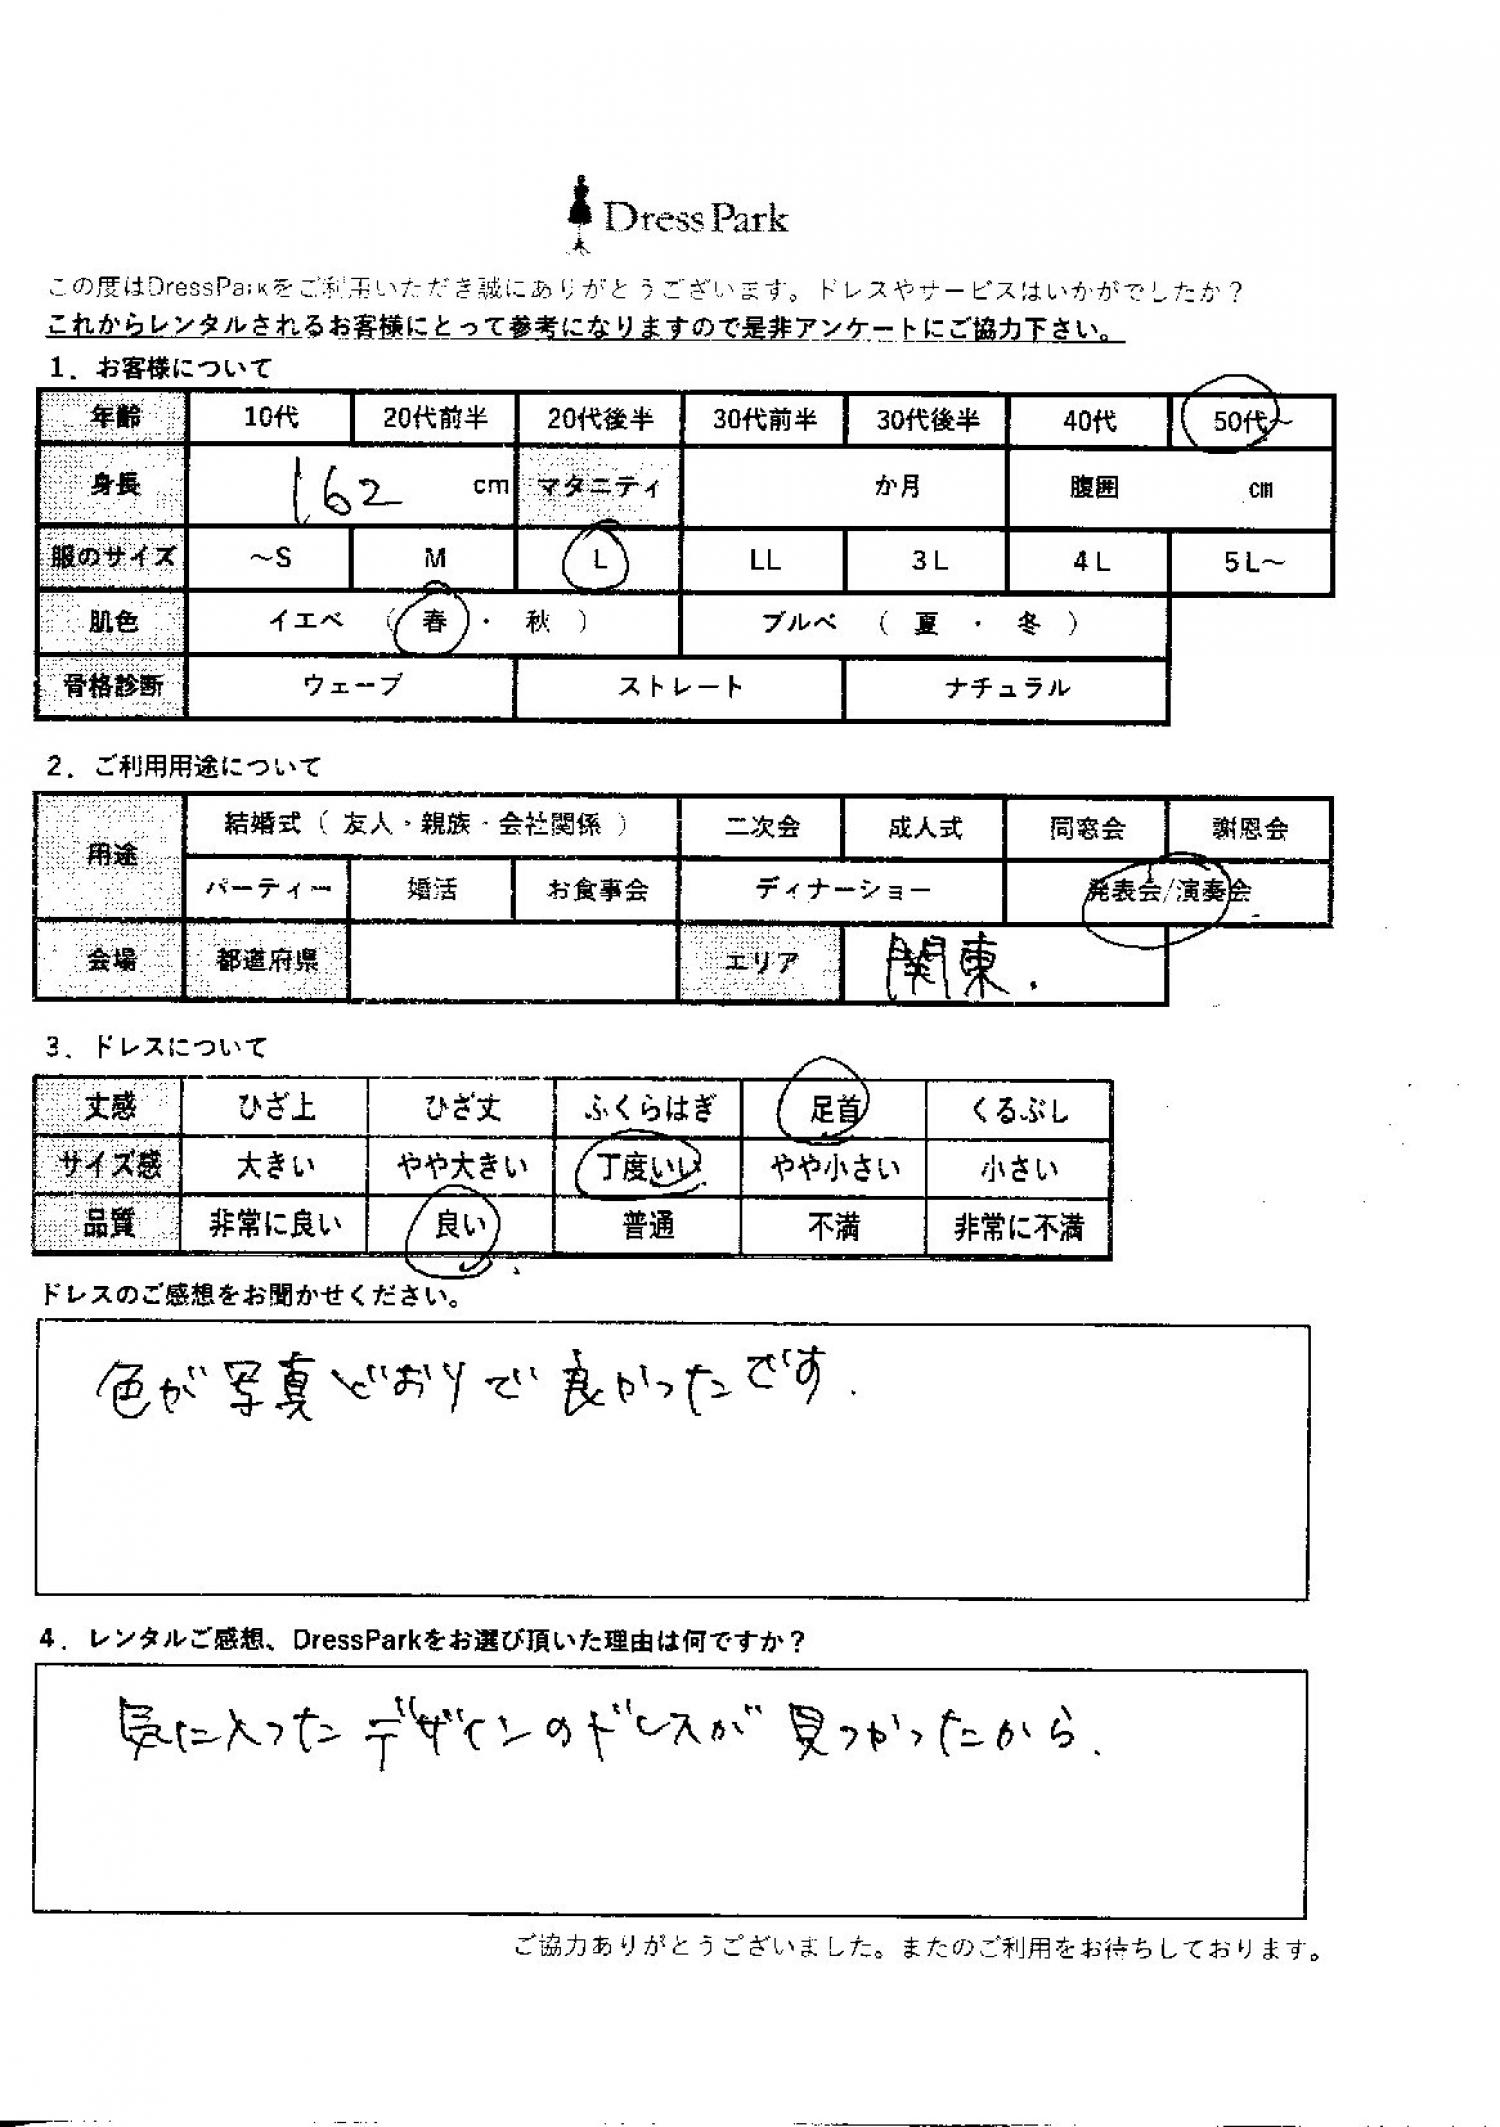 Dress Park
この度はDressParkをご利用いただき誠にありがとうございます。ドレスやサービスはいかがでしたか?
これからレンタルされるお客様にとって参考になりますので是非アンケートにご協力下さい。
1. お客様について
年齢 10代 20代前半 20代後半 30代前半 30代後半 40代 50代~
身長 162 cm マタニティ か月 腹囲 cm
服のサイズ ~S M L LL 3L 4L 5L~
肌色 イエベ ( 春 ・ 秋 ) ブルベ ( 夏 ・ 冬 )
骨格診断 ウェーブ ストレート ナチュラル
2. ご利用用途について
用途 結婚式 ( 友人・親族・会社関係 ) 二次会 成人式 同窓会 謝恩会
パーティー 婚活 お食事会 ディナーショー 発表会/演奏会
会場 都道府県 エリア 関東.
3. ドレスについて
丈感 ひざ上 ひざ丈 ふくらはぎ 足首 くるぶし
サイズ感 大きい やや大きい 丁度いい やや小さい 小さい
品質 非常に良い 良い 普通 不満 非常に不満
ドレスのご感想をお聞かせください。
色が写真どおりで良かったです.
4. レンタルご感想、DressParkをお選び頂いた理由は何ですか?
気に入ったデザインのドレスが見つかったから.
ご協力ありがとうございました。またのご利用をお待ちしております。